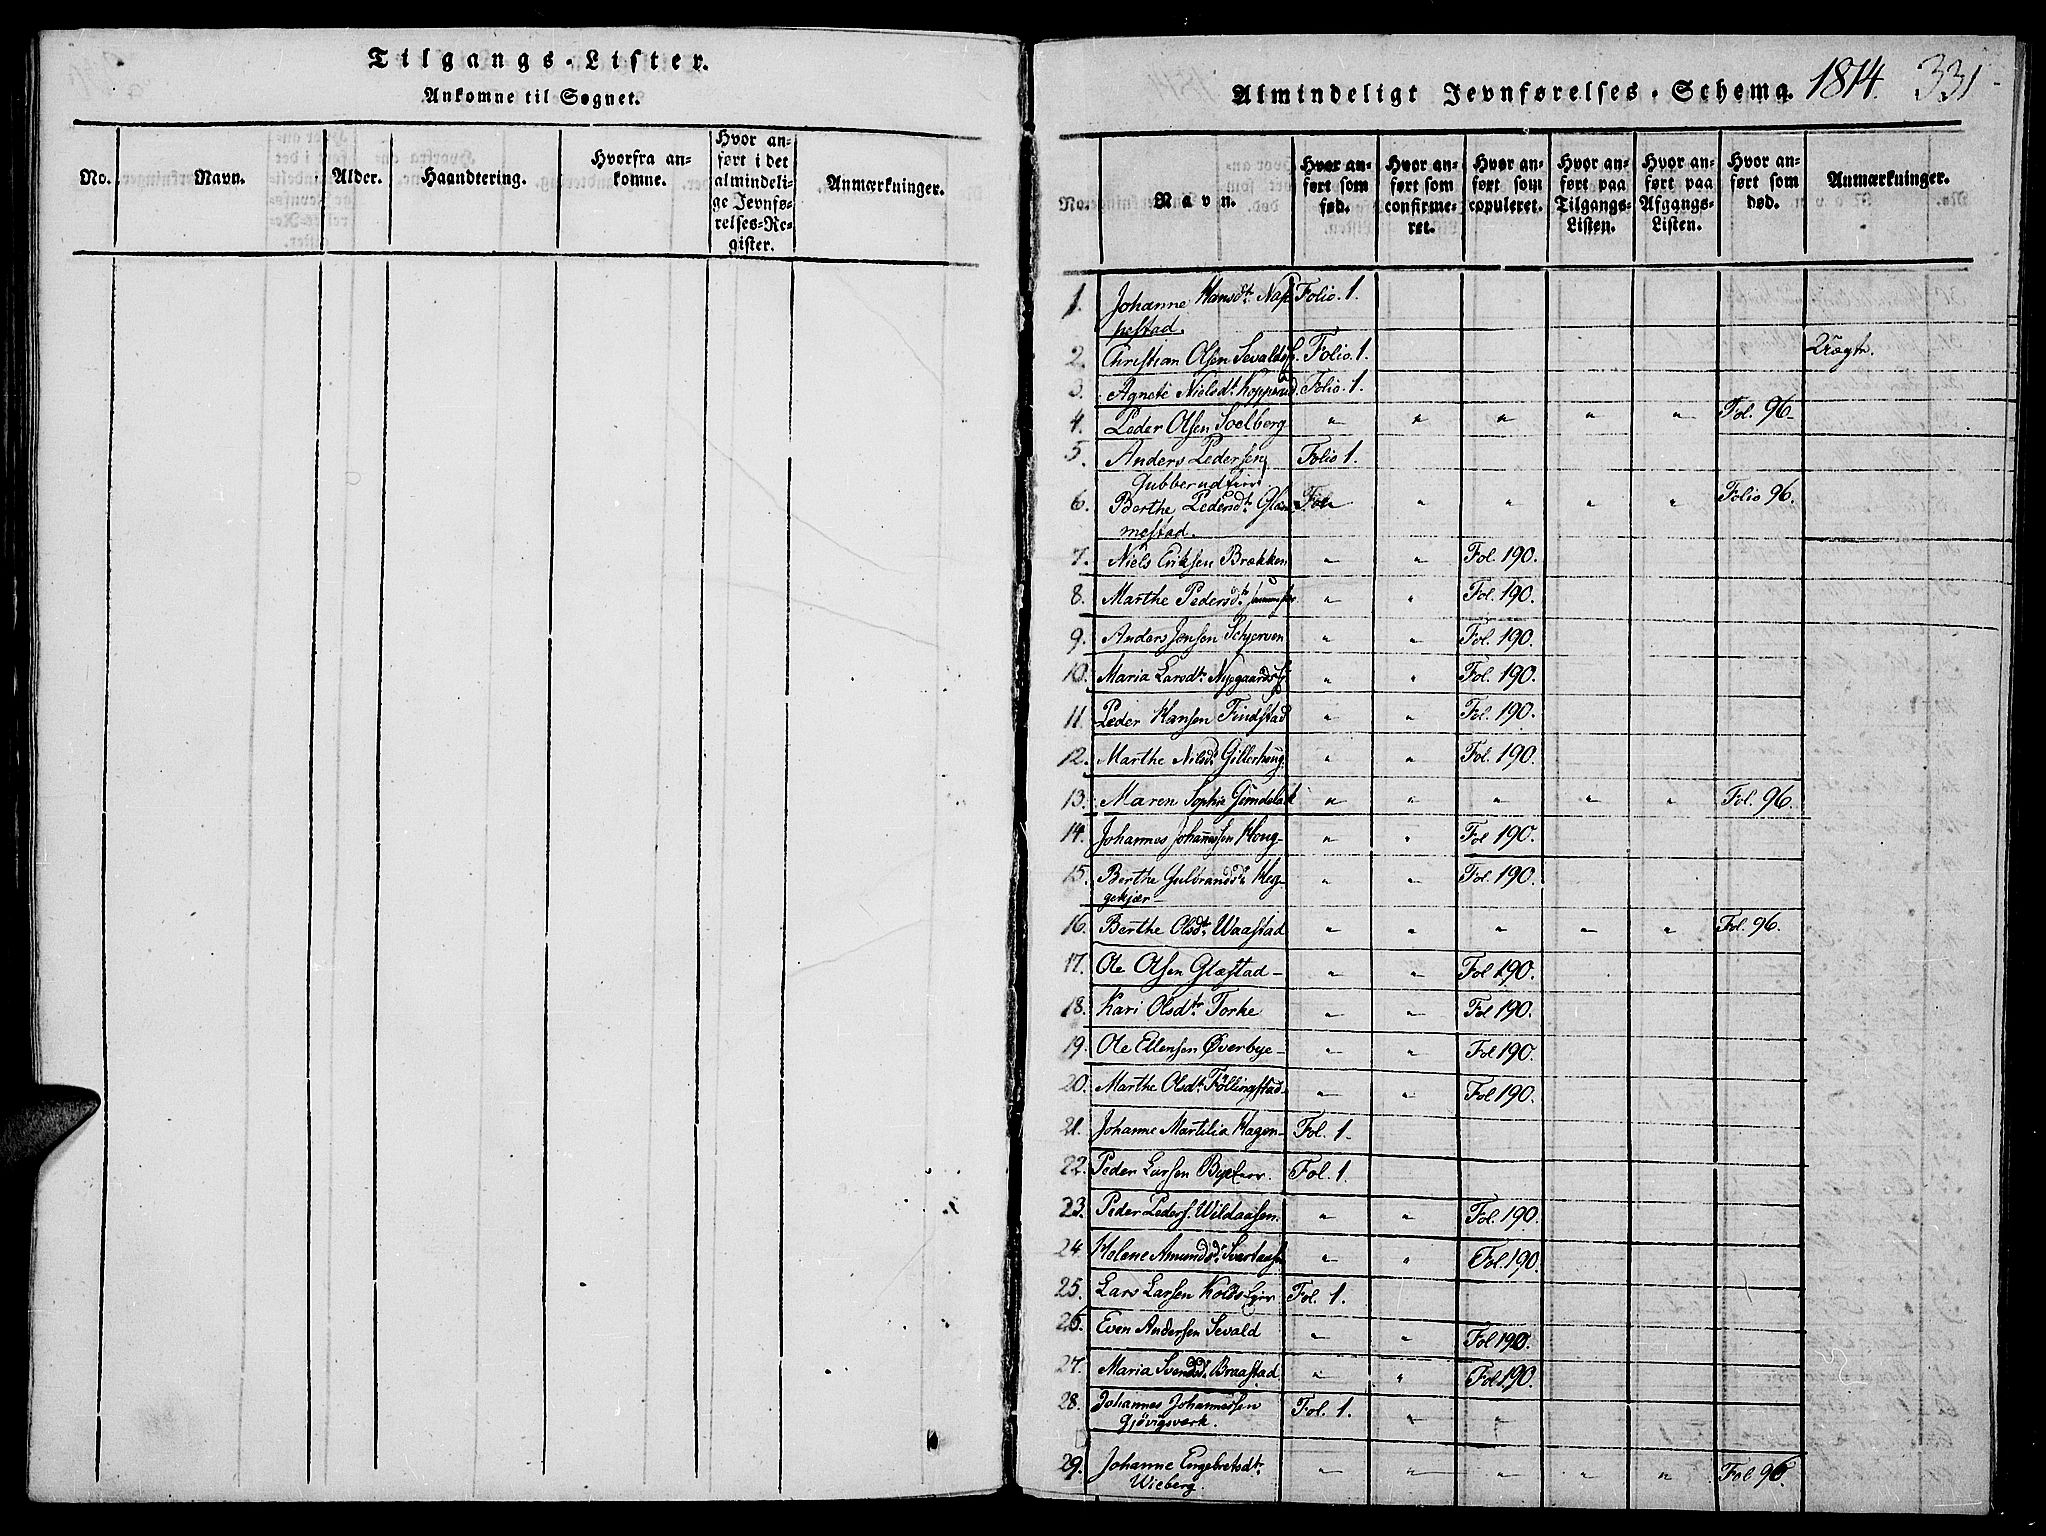 Tilgangs-Lister.
Ankomne til Sognet.
No.
Navn.
Alder.
Haandtering.
Hvorfra an-
komne.
Hvor an-
ført i det
almindeli-
ge Jevnfø-
relses-Re-
gister.
Anmærkninger.
Almindeligt Jevnførelses-Schema. 1814. 331
No.
Navn.
Hvor an-
ført som
fød.
Hvor an-
ført som
confirme-
ret.
Hvor an-
ført som
copuleret.
Hvor an-
ført paa
Tilgangs-
Listen.
Hvor an-
ført paa
Afgangs-
Listen.
Hvor an-
ført som
død.
Anmærkninger.
1. Johanne Hansdtr. Folio. 1.
2. Christian Olsen Folio. 1.
3. Agnete Nielsdt. Folio. 1.
4. Peder Olsen Soelberg " " " " " Fol. 96
5. Anders Pedersen Folio 1.
6. Berthe Pedersdtr. " " " " Folio 96.
mestad.
7. Niels Eriksen Brækken " " Fol. 190.
8. Marthe Pedersdtr. " " Fol. 190.
9. Anders Jensen Schjerven " " Fol. 190.
10. Maria Larsdtr. " " Fol. 190.
11. Peder Hansen Findstad " " Fol. 190.
12. Marthe Nilsd. Gillerhaug " " Fol. 190.
13. Maren Sophie " " " " " Fol. 96.
14. Johannes Johannessen Houg " " Fol 190.
15. Berthe Gulbrandsd. Heg- " " Fol. 190.
gekjær
16. Berthe Olsdt. Waastad " " " " " Fol. 96.
17. Ole Olsen Glæstad " " Fol 190.
18. Kari Olsdtr. Torke " " Fol 190.
19. Ole Ellensen Øverbye " " Fol 190.
20. Marthe Olsdt. Föllingstad " " Fol 190.
21. Johanne Martilia Hagen Fol. 1.
22. Peder Larsen Fol. 1.
23. Peder Peders. Wildaasen " " Fol. 190.
24 Helene Amundsd. " " Fol. 190.
25. Lars Larsen Fol. 1.
26. Even Andersen Sevald " " Fol 190.
27. Maria Svendsd. Braastad " " Fol 190.
28. Johannes Johannessen Fol. 1. " "
Gjövigsværk.
29. Johanne Engebretsdtr. " " " " " Fol 96
Wieberg.